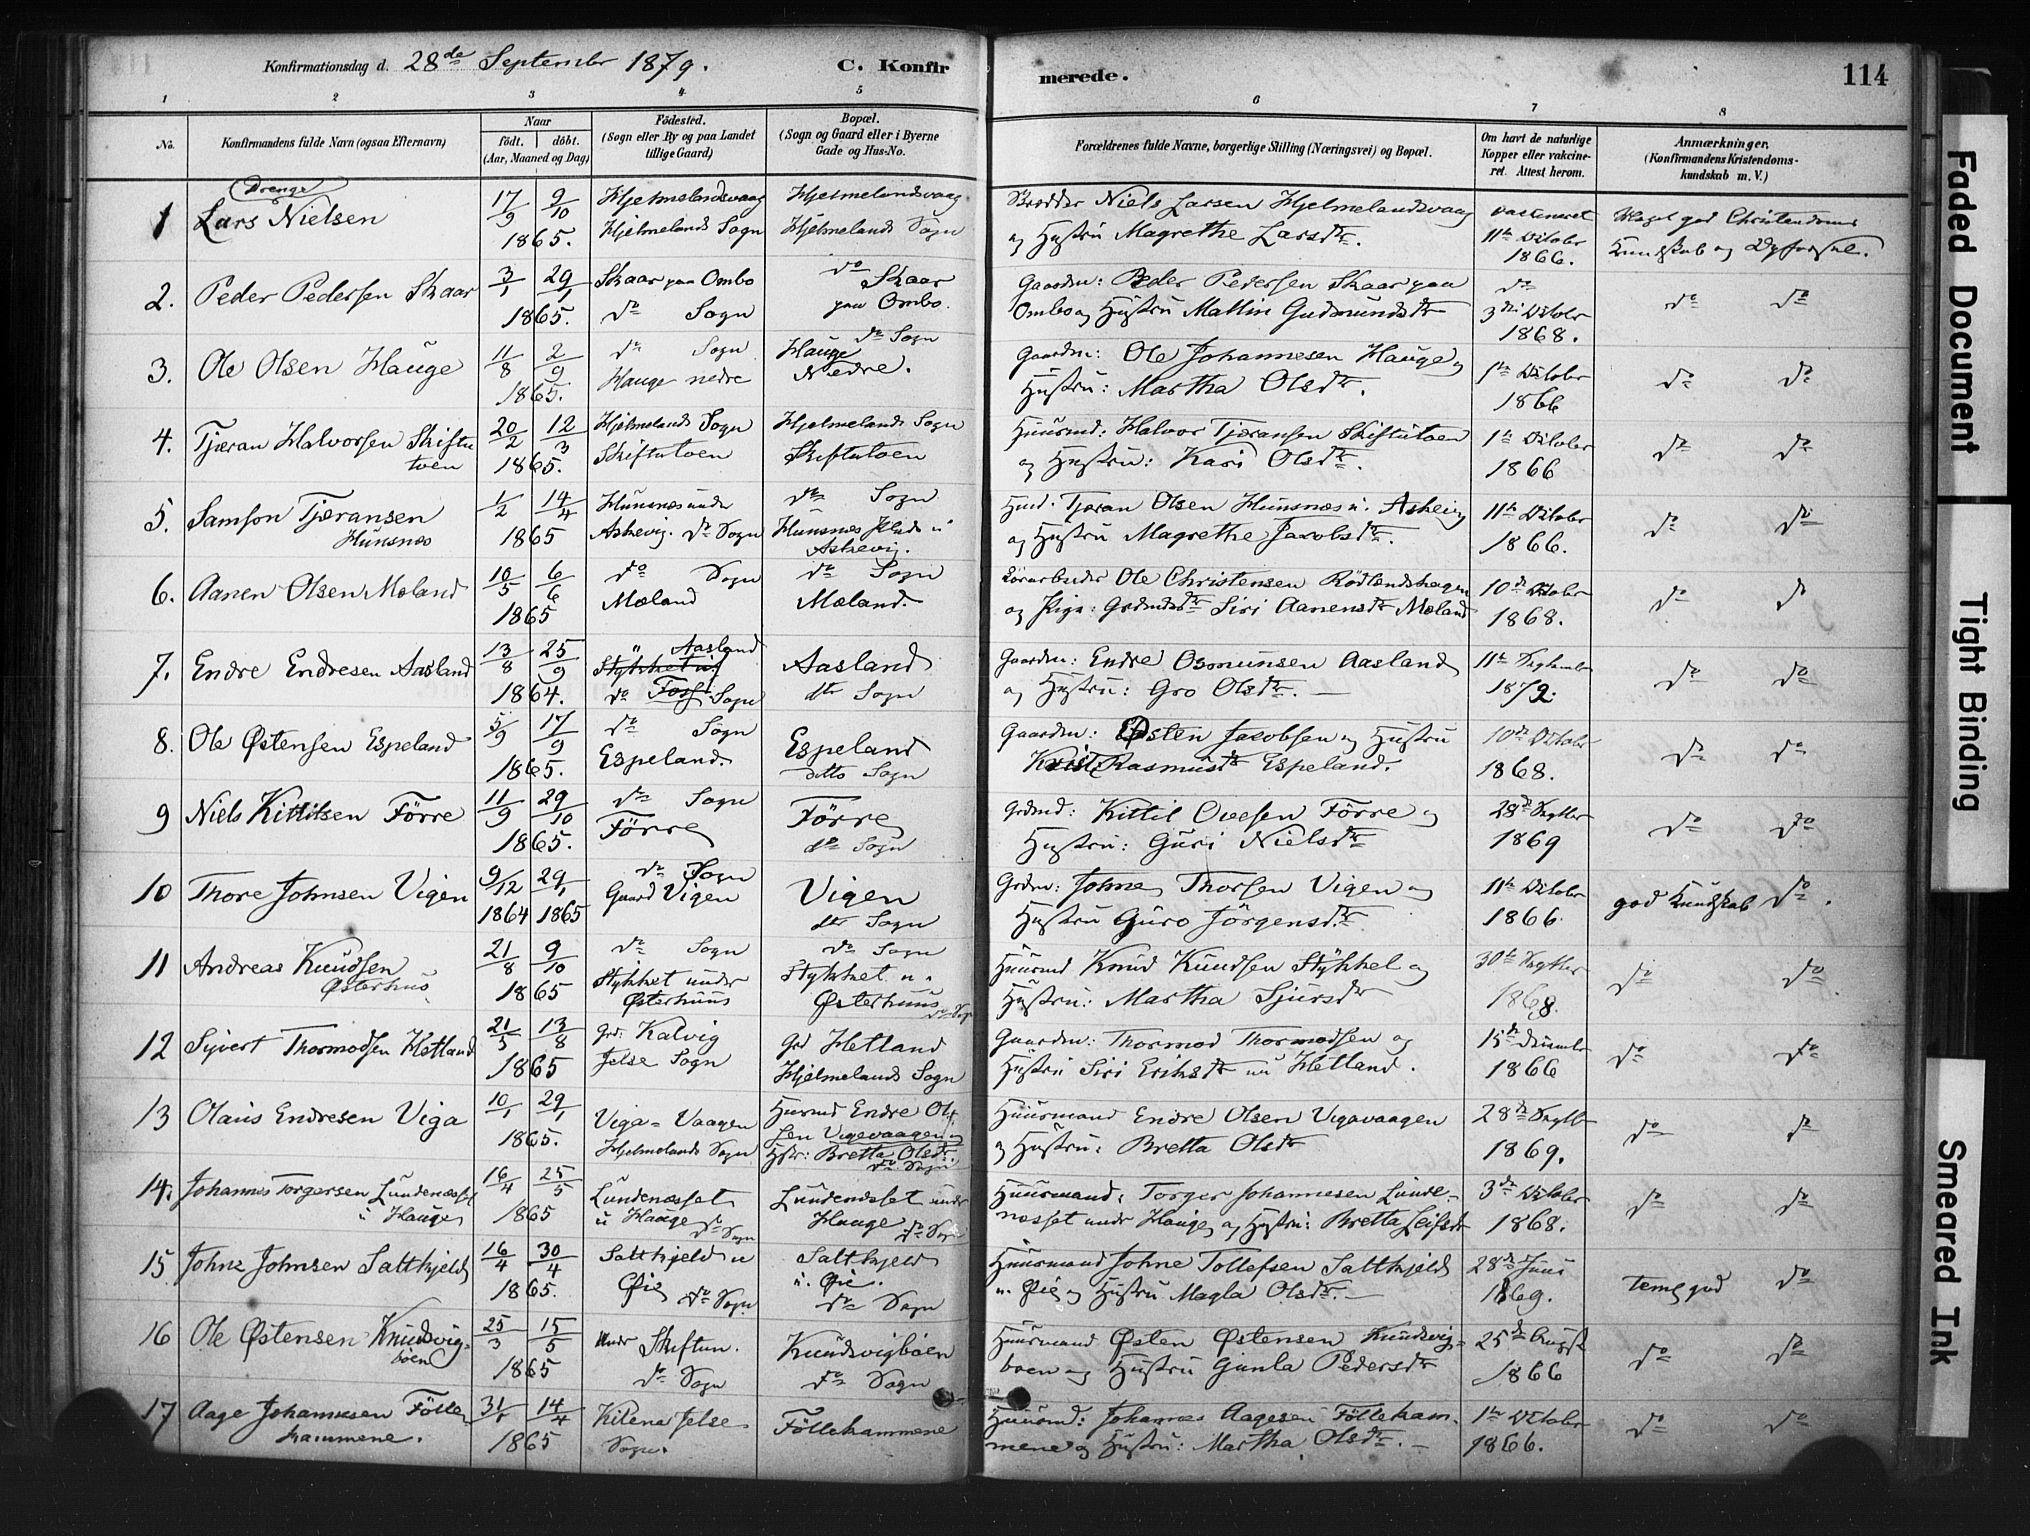 Konfirmationsdag d. 28de September 1879. C. Konfirmerede. 114
1 2 3 4 5 6 7 8
No.
Konfirmandens fulde Navn (ogsaa Efternavn)
Naar
födt. döbt.
(Aar, Maaned og Dag)
Födested.
(Sogn eller By og paa Landet
tillige Gaard)
Bopæl.
(Sogn og Gaard eller i Byerne
Gade og Hus-No.
Forældrenes fulde Navne, borgerlige Stilling (Næringsvei) og Bopæl.
Om havt de naturlige
Kopper eller vakcine-
ret. Attest herom.
Anmærkninger,
(Konfirmandens Kristendoms-
kundskab m. V.)
Drenge
1 Lars Nielsen 17/9 9/10 Hjelmelandsvaag Hjelmelandsvaag Niels Larsen Hjelmelandsvaag vaccineret Meget god Christendoms
1865. Hjelmelands Sogn Hjelmelands Sogn og Hustru Magrethe Larsdtr. 11te Octobr Kundskab og Opførsel.
1866.
2. Peder Pedersen Skaar 3/1 29/1 Skaar paa Ombo do Skaar Gaardm: Peder Pedersen Skaar paa do
1865. do Sogn paa Ombo. Ombo og Hustru Mallin Gudmundsdtr 3die Octobr do do
do Sogn 1868.
3. Ole Olsen Hauge 11/8 2/9 do Sogn Hauge Gaardm: Ole Johannesen Hauge og 1te Octobr do do
1865. Hauge nedre Nedre. Hustru: Martha Olsdtr. 1866
4. Tjæran Halvorsen Skiftu 20/2 12/3 Hjelmelands Sogn Hjelmelands Sogn Huusmd: Halvor Tjæransen Skiftutoen 1te Octobr do do
toen 1865. Skiftutoen Skiftutoen og Hustru: Kari Olsdtr. 1866
5. Samson Tjæransen 1/2 14/4 Hunsnes under do Sogn Husmd. Tjæran Olsen Hunsnæs u. Askevig 11te Octobr do do
Hunsnæs 1865 Askevig. do Sogn Hunsnæs u og Hustru Magrethe Jacobsdtr. 1866.
Askevig.
6. Aanen Olsen Mæland 10/5 6/6 do Sogn do Sogn Ole Christensen Rödlandshagen 10de Octobr do do
1865 Mæland Mæland. og Pige: Siri Aanensdtr Mæland 1868.
7. Endre Endresen Aasland 13/8 25/9 " Aasland Aasland Gaardm: Endre Osmunsen Aasland 11te September do do
1864. do Sogn do Sogn og Hustru: Gro Olsdtr. 1872.
8. Ole Østensen Espeland 5/9 17/9 do Sogn Espeland Gaardm: Østen Jacobsen og Hustru 10de Octobr do do
1865. Espeland. ditto Sogn Rasmusdtr Espeland. 1868.
9 Niels Kittilsen Förre 11/9 29/10 do Sogn Förre Grdmd: Kittil Ovesen Förre og 28de Septbr do do
1865. Förre do Sogn Hustru: Guri Nielsdtr 1869
10 Thore Johnsen Vigen 9/12 29/1 do Sogn Vigen Grdm: Johne Thorsen Vigen og 11te Octobr god Kundskab do.
1864 1865 Gaard Vigen do Sogn Hustru Guro Jörgensdtr 1866.
11 Andreas Knudsen 21/8 9/10 do Sogn do Sogn Huusmd Knud Knudsen Stykket og 30te Septbr do do
Østerhus 1865 Stykket under Stykket u. Hustru: Martha Sjursdtr 1868.
Østerhuus Østerhuus do Sogn
12 Sivert Thormodsen Hetland 21/5 13/8 Grd. Kalvig Grd Hetland Gaardm: Thormod Thormodsen og 15de December do do
1865 Jelse Sogn Hjelmelands Sogn Hustru Siri Eriksdtr Hetland. 1866
13 Olaus Endresen Viga 10/1 29/1 Viga-Vaagen Husmd Endre Ol- Huusmand Endre Olsen Vigavaagen 28de Septbr do do
1865. Hjelmelands Sogn sen Vigevaagen og og Hustru: Bretta Olsdtr 1869.
Hstr: Bretta Olsdtr.
do Sogn
14. Johannes Torgersen Lundenæsset 16/4 25/5 Lundenæsset Lundenæsset under Huusmand: Torger Johannesen Lunde- 3die Octobr do do
u Hauge 1865 u Hauge do Sogn Hauge do Sogn næsset under Hauge og Hustru: Bretta Leifsdtr 1868.
15 Johne Johnsen Saltkjeld 16/4 30/4 Saltkjeld u Saltkjeld Huusmand Johne Tollefsen Saltkjeld 28de Juni temg god do
1865. Øie do Sogn u. Øie. u. Øie og Hustru Magla Olsdtr. 1869.
do Sogn
16 Ole Østensen Knudsvig- 25/3 15/5 under Skiftun. Knudsvigböen Huusmand Østen Østensen Knudsvig- 25de August do do
böen 1865 do Sogn do Sogn boen og Hustru Gunla Pedersdtr 1866
17 Aage Johannesen Fölle- 31/1 14/4 Kilena Jelse Föllehammene Huusmd: Johannes Aagesen Fölleham- 1te Octobr do do
hammene. 1865 Sogn. mene og Hustru: Martha Olsdtr. 1866.
Faded Document
Tight Binding
Smeared Ink